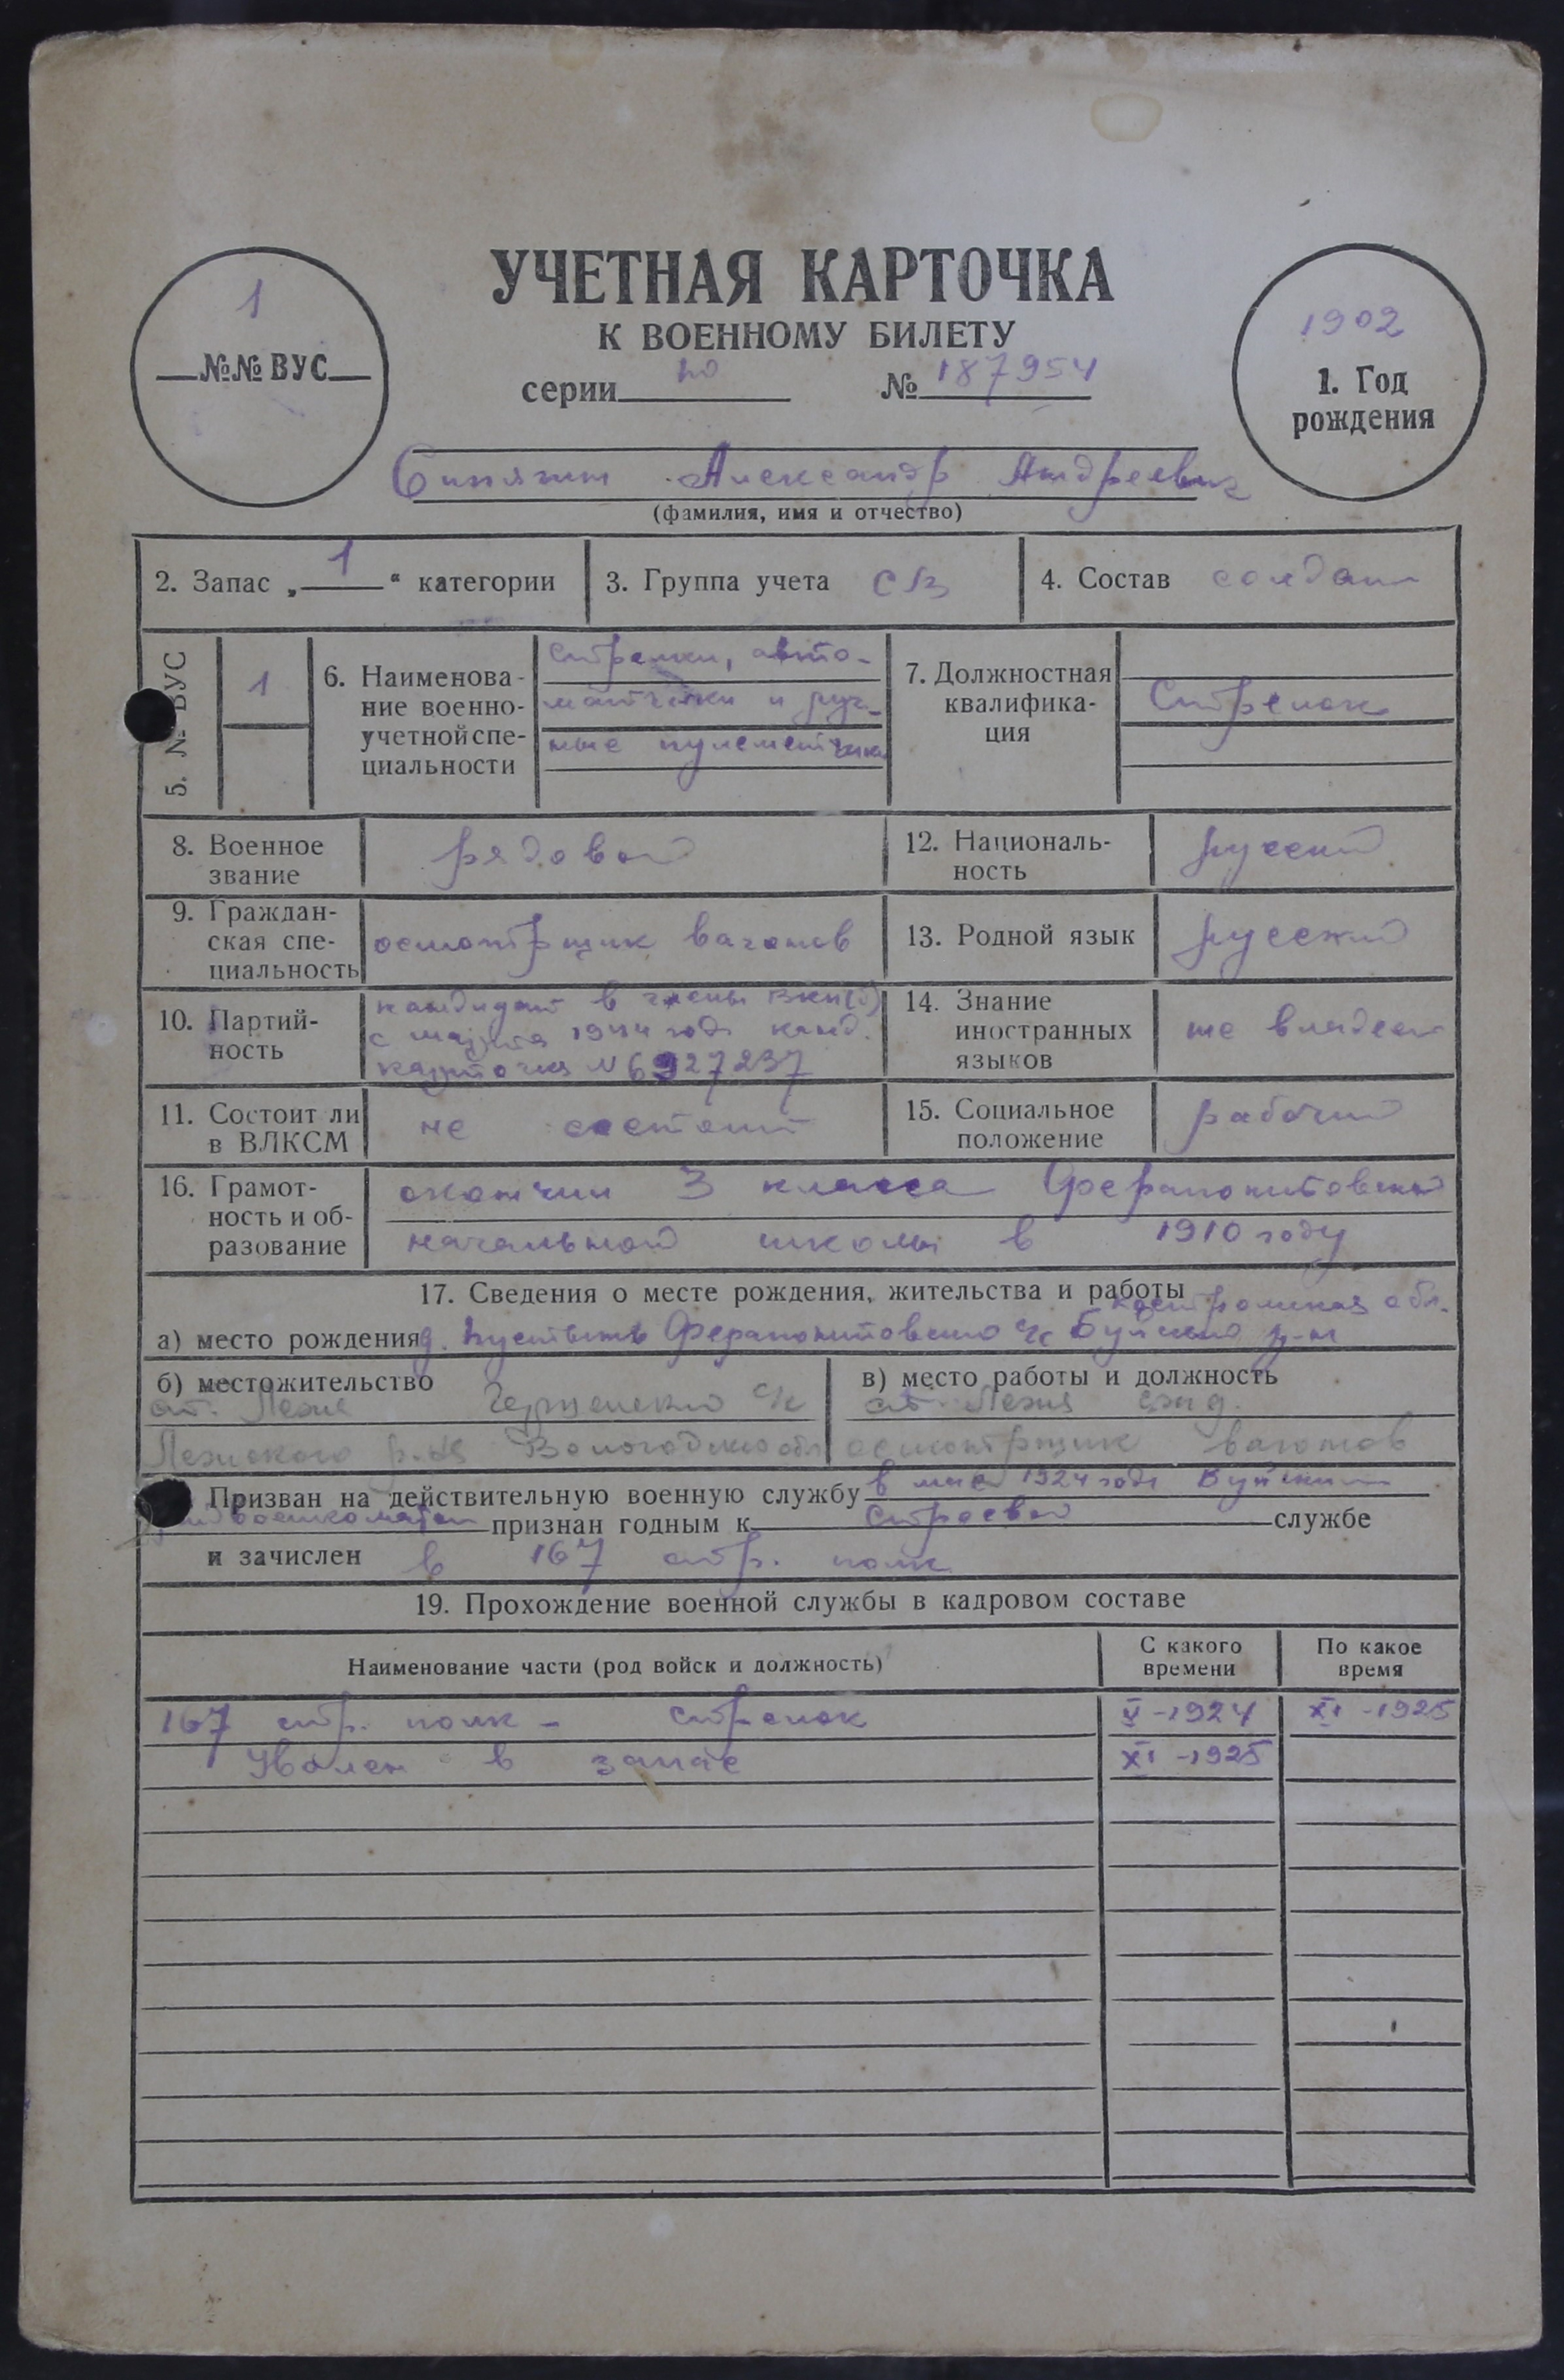 УЧЕТНАЯ КАРТОЧКА
К ВОЕННОМУ БИЛЕТУ
1
№№ ВУС
серии № 187954
1902
1. Год
рождения
Александр Андреевич
(фамилия, имя и отчество)
2. Запас „ 1 “ категории
3. Группа учета СВ
4. Состав солдат
5. № ВУС
1
6. Наименова-
ние военно-
учетной спе-
циальности
стрелки, авто-
матчики и руч-
ные пулеметчики
7. Должностная
квалифика-
ция
Стрелок
8. Военное
звание
рядовой
12. Националь-
ность
русский
9. Граждан-
ская спе-
циальность
осмотрщик вагонов
13. Родной язык
русский
10. Партий-
ность
кандидат в члены ВКП(б)
с марта 1944 года канд.
карточка № 6927237
14. Знание
иностранных
языков
не владеет
11. Состоит ли
в ВЛКСМ
не состоит
15. Социальное
положение
рабочий
16. Грамот-
ность и об-
разование
окончил 3 класса Ферапонтовской
начальной школы в 1910 году
17. Сведения о месте рождения, жительства и работы
Костромская обл.
а) место рождения д. Ферапонтовского с/с Буйского р-на
б) местожительство
ст. Лежа с/с
Лежского р-на Вологодской обл
в) место работы и должность
ст. Лежа сжд.
осмотрщик вагонов
Призван на действительную военную службу в мае 1924 года Буйским
райвоенкоматом признан годным к строевой службе
и зачислен в 167 стр. полк
19. Прохождение военной службы в кадровом составе
Наименование части (род войск и должность)
С какого
времени
По какое
время
167 стр. полк - стрелок V-1924 XI-1925
Уволен в запас XI-1925